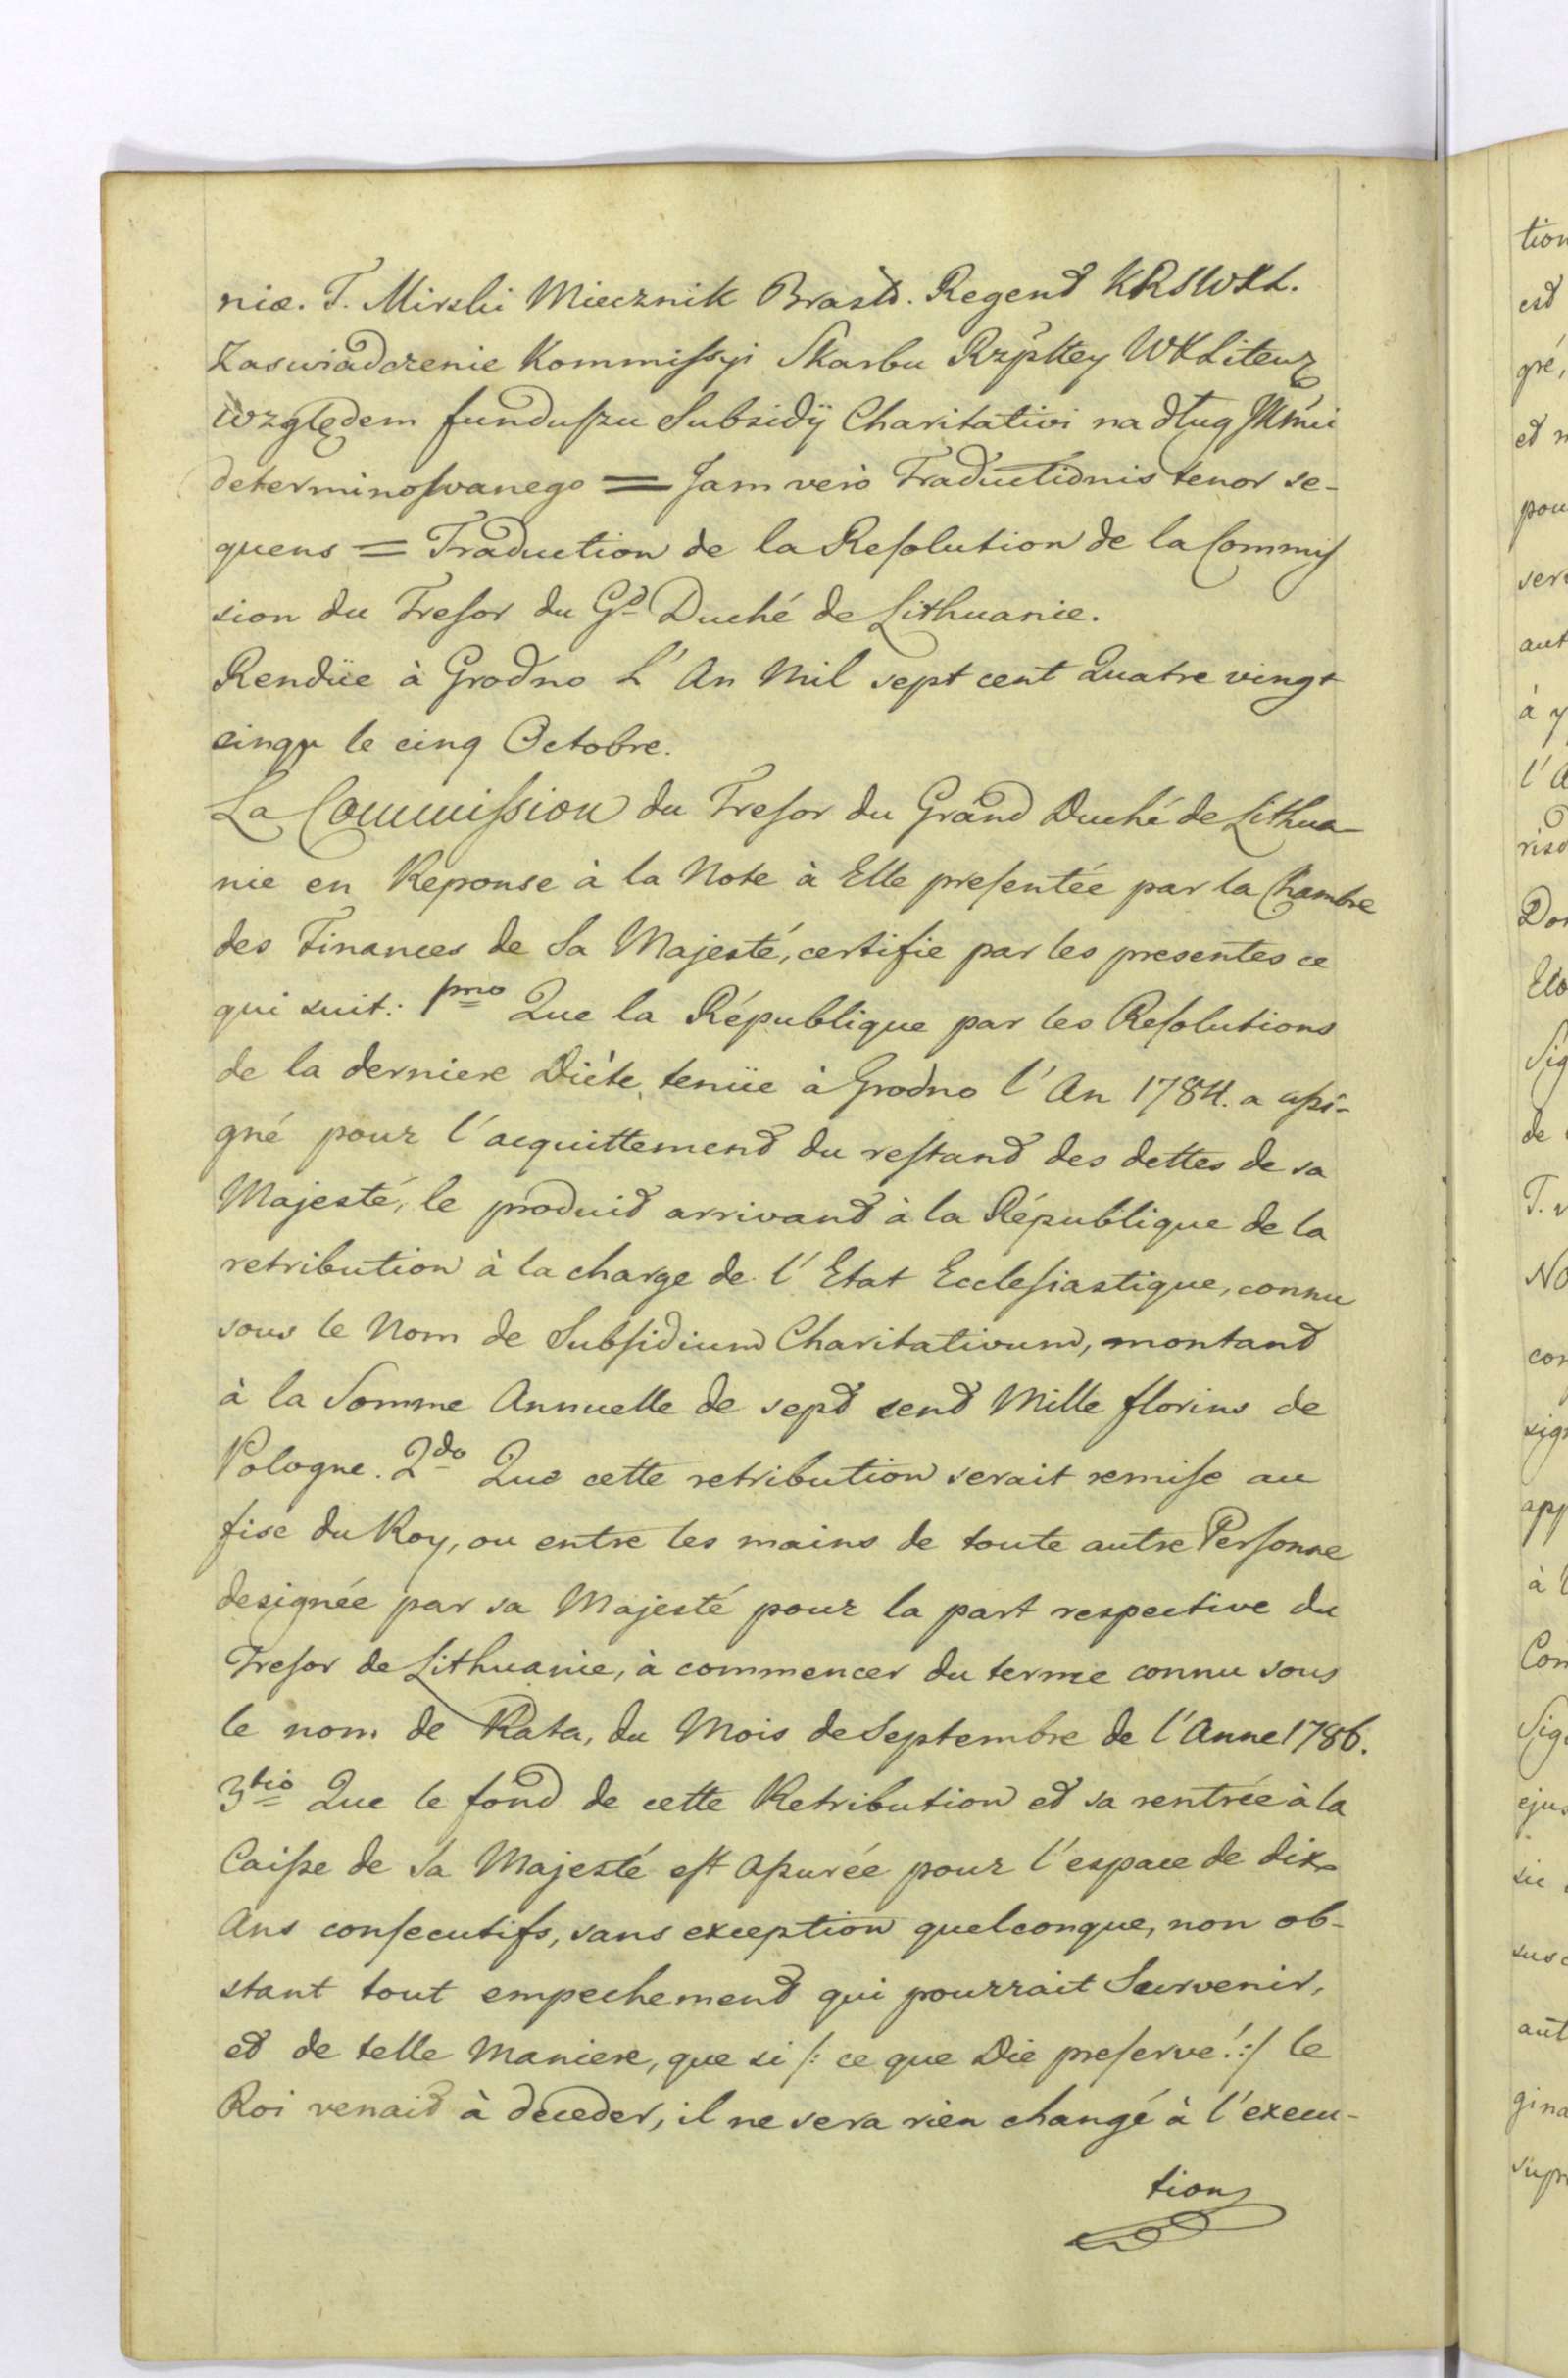 niæ. T. Mirski Miecznik Brasł. Regent KRSWXL.
Zaswiadczenie Kommissyi Skarbu Rzpltey WXLitew
względem funduszu Subsidÿ Charitativi na dług JKMci
determinowanego = Jam verò Traductionis tenor se-
quens = Traduction de la Resolution de la Commis
sion du Tresor du Gd Duché de Lithuanie.
Rendüe à Grodno L' An Mil sept cent Quatre vingt
cinqu le cinq Octobre.
La Commission du Tresor du Grand Duché de Lithua-
nie en Reponse à la Note à Elle presentée par la Chambre
des Finances de Sa Majesté, certifie par les presentes ce
qui suit: 1mo Que la République par les Resolutions
de la derniere Diète, tenüe à Grodno l' An 1784. a assi-
gné pour l'acquittement du restant des dettes de sa
Majesté, le produit arrivant à la République de la
retribution à la charge de l' Etat Ecclesiastique, connu
sous le Nom de Subsidium Charitativum, montant
à la Somme Annuelle de sept sent Mille florins de
Pologne. 2do Que cette retribution serait remise au
fisc du Roy, ou entre les mains de toute autre Personne
designée par sa Majesté pour la part respective du
Tresor de Lithuanie, à commencer du terme connu sous
le nom de Rata, du Mois de Septembre de l'Anne 1786.
3tio Que le fond de cette Retribution et sa rentrée à la
Caisse de Sa Majesté est assurée pour l'espace de dix
Ans consecutifs, sans exception quelconque, non ob-
stant tout empechement qui pourrait Survenir,
et de telle Maniere, que si /: ce que Die preserve! :/ le
Roi venait à deceder, il ne sera rien changé à l'execu-
tion
tion
est
gré,
et
pou
ser
aut
à y
l'
Sig
de
T.
con
sig
app
à
Con
Sig
ejus
aut
gina
supr